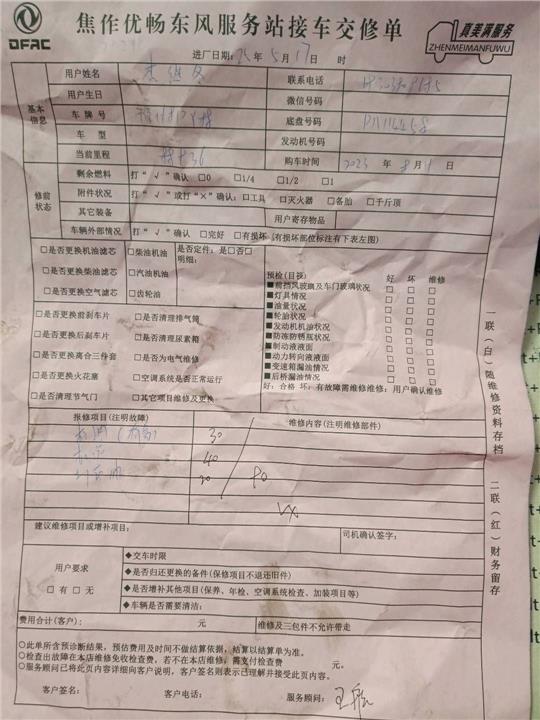 DFAC
焦作优畅东风服务站接车交修单
真美满服务
ZHENMEIMANFUWU
进厂日期：25年 5月 17日 时
用户姓名
联系电话
基本信息
用户生日
微信号码
车 牌 号
底盘号码
车 型
发动机号码
当前里程
购车时间 2023 年 8月 1日
修前状态
剩余燃料 打“√”确认 □0 □1/4 □1/2 □1
附件状况 打“√”或打“×”确认：□工具 □灭火器 □备胎 □千斤顶
其它装备
用户寄存物品
车辆外部情况 打“√”确认 □完好 □有损坏（有损坏部位标注有下表左图）
□是否更换机油滤芯 □柴油机油 是否定件：是□否□
明细：
□是否更换柴油滤芯 □汽油机油
□是否更换空气滤芯 □齿轮油
□是否更换前刹车片 □是否清理排气筒
□是否更换后刹车片 □是否清理尿素箱
□是否更换离合三件套 □是否为电气维修
□是否更换火花塞 □空调系统是否正常运行
□是否清理节气门 □其它项目维修及更换
预检(目视) 好 坏 维修
■前挡风玻璃及车门玻璃状况 □ □ □
■灯具情况 □ □ □
■油量状况 □ □ □
■轮胎状况 □ □ □
■发动机机油状况 □ □ □
■防冻防锈瓶状况 □ □ □
■制动液液面 □ □ □
■动力转向液液面 □ □ □
■变速箱漏油情况 □ □ □
■后桥漏油情况 □ □ □
好：合格 坏：有故障需维修维修：用户确认维修
报修项目(注明故障)
维修内容(注明维修部件)
30
40
20
建议维修项目或增补项目：
司机确认签字：
用户要求
□ 有 □ 无
◆交车时限
◆是否归还更换的备件(保修项目不退还旧件)
◆是否增补其他项目(保养、年检、空调系统检查、加装项目等)
◆车辆是否需要清洁：
费用合计(客户)： 元
维修及三包件不允许带走
○此单所含预诊断结果，预估费用及时间不做结算依据，结算以结算单为准。
○检查出故障在本店维修免收检查费，若不在本店维修，需支付检查费 元。
○服务顾问已将此页内容详细向客户说明，客户签名则表示已理解并接受此页内容。
客户签名：
客户电话：
服务顾问：
一联（白）随维修资料存档
二联（红）财务留存